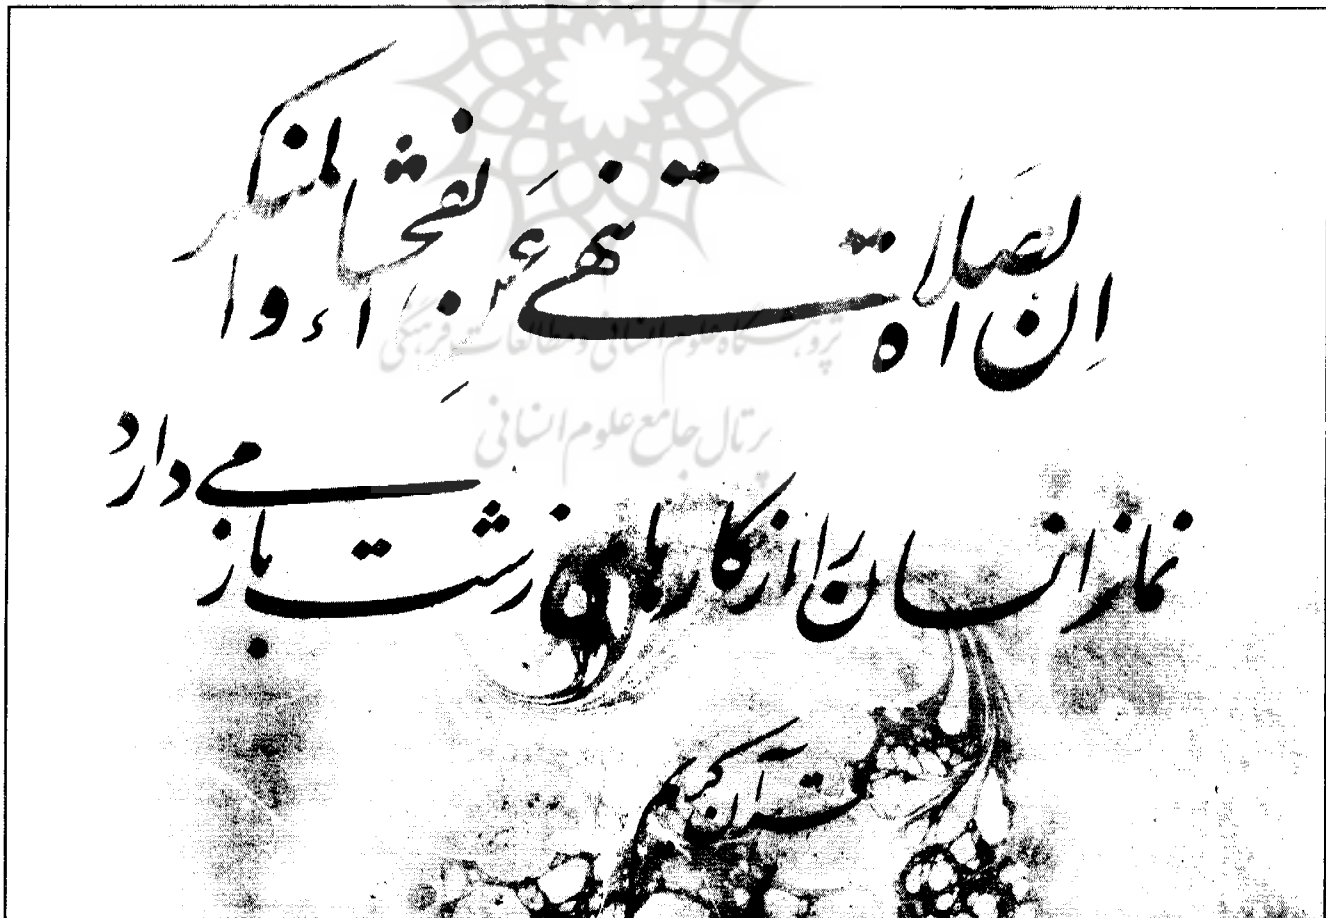 ان الصلاة تنهی عن الفحشاء والمنکر
پژوهشگاه علوم انسانی و مطالعات فرهنگی
پرتال جامع علوم انسانی
نماز انسان را از کارهای زشت باز می‌دارد
قرآن کریم